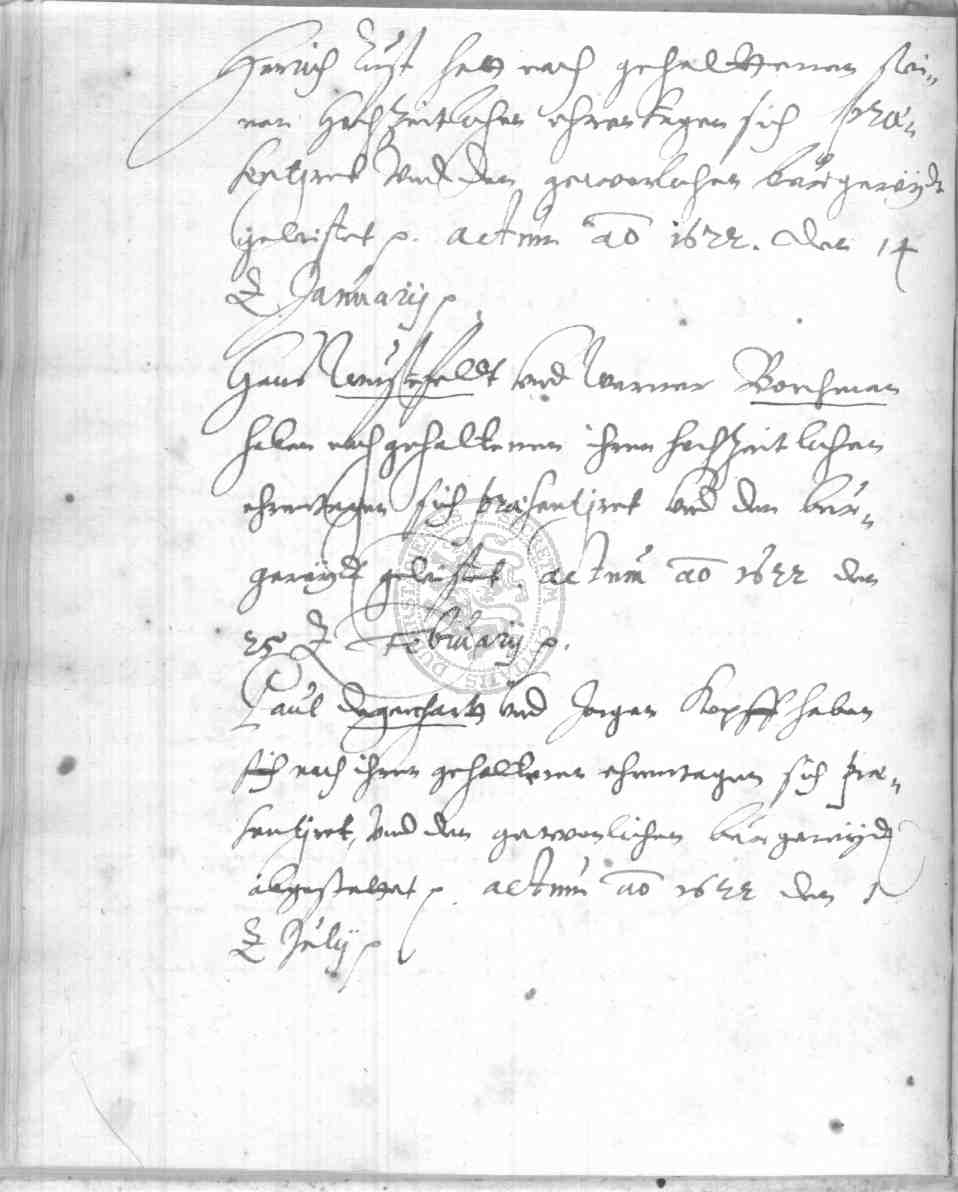 Henrich Lust hatt nach gehalttenen sei„
nen Hochzeitlichen ehrentagen sich præ„
sentiret Vnd den gewonlichen bürgereÿdt
geleistet p. actum ao 1622. den 14
Januarÿ p
Hans Wustefeldt vnd Werner Borchman
haben nach gehaltenen ihren hochzeitlichen
ehrentagen sich præsentiret vnd den bur„
gereÿdt geleistet. actum ao 1622 den
25 Februarÿ p.
Paul Degenhartt vnd Jorgen Kopff haben
sich nach ihren gehaltenen ehrentagen sich præ„
sentiret, Vnd den gewonlichen burgereÿd
abgestattet p. actum ao 1622 den 1
Julÿ p